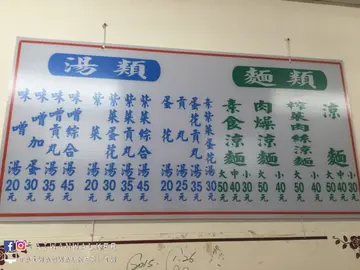 麵類
涼麵 大50元 中40元 小30元
榨菜肉絲涼麵 大50元 小40元
肉燥涼麵 大50元 小40元
素食涼麵 大50元 中40元 小30元
湯類
素紫菜蛋花湯30元
貢丸湯25元
蛋花湯20元
紫菜綜合湯45元
紫菜貢丸湯35元
紫菜蛋花湯30元
紫菜湯20元
味噌綜合湯45元
味噌貢丸湯35元
味噌加蛋湯30元
味噌湯20元